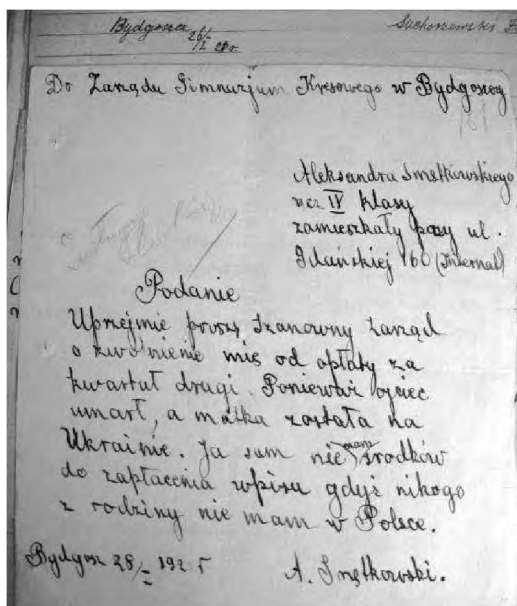 Bydgoszcz
Do Zarządu Gimnazjum Kresowego w Bydgoszczy
Aleksandra Smętkowskiego
ucz IV klasy
zamieszkały przy ul.
Gdańskiej 160 (Internat)
Podanie
Uprzejmie proszę Szanowny Zarząd
o zwolnienie mię od opłaty za
kwartał drugi. Ponieważ ojciec
umarł, a matka została na
Ukrainie. Ja sam nie mam środków
do zapłacenia wpisu gdyż nikogo
z rodziny nie mam w Polsce.
Bydgosz 28/I 192 r
A. Smętkowski.